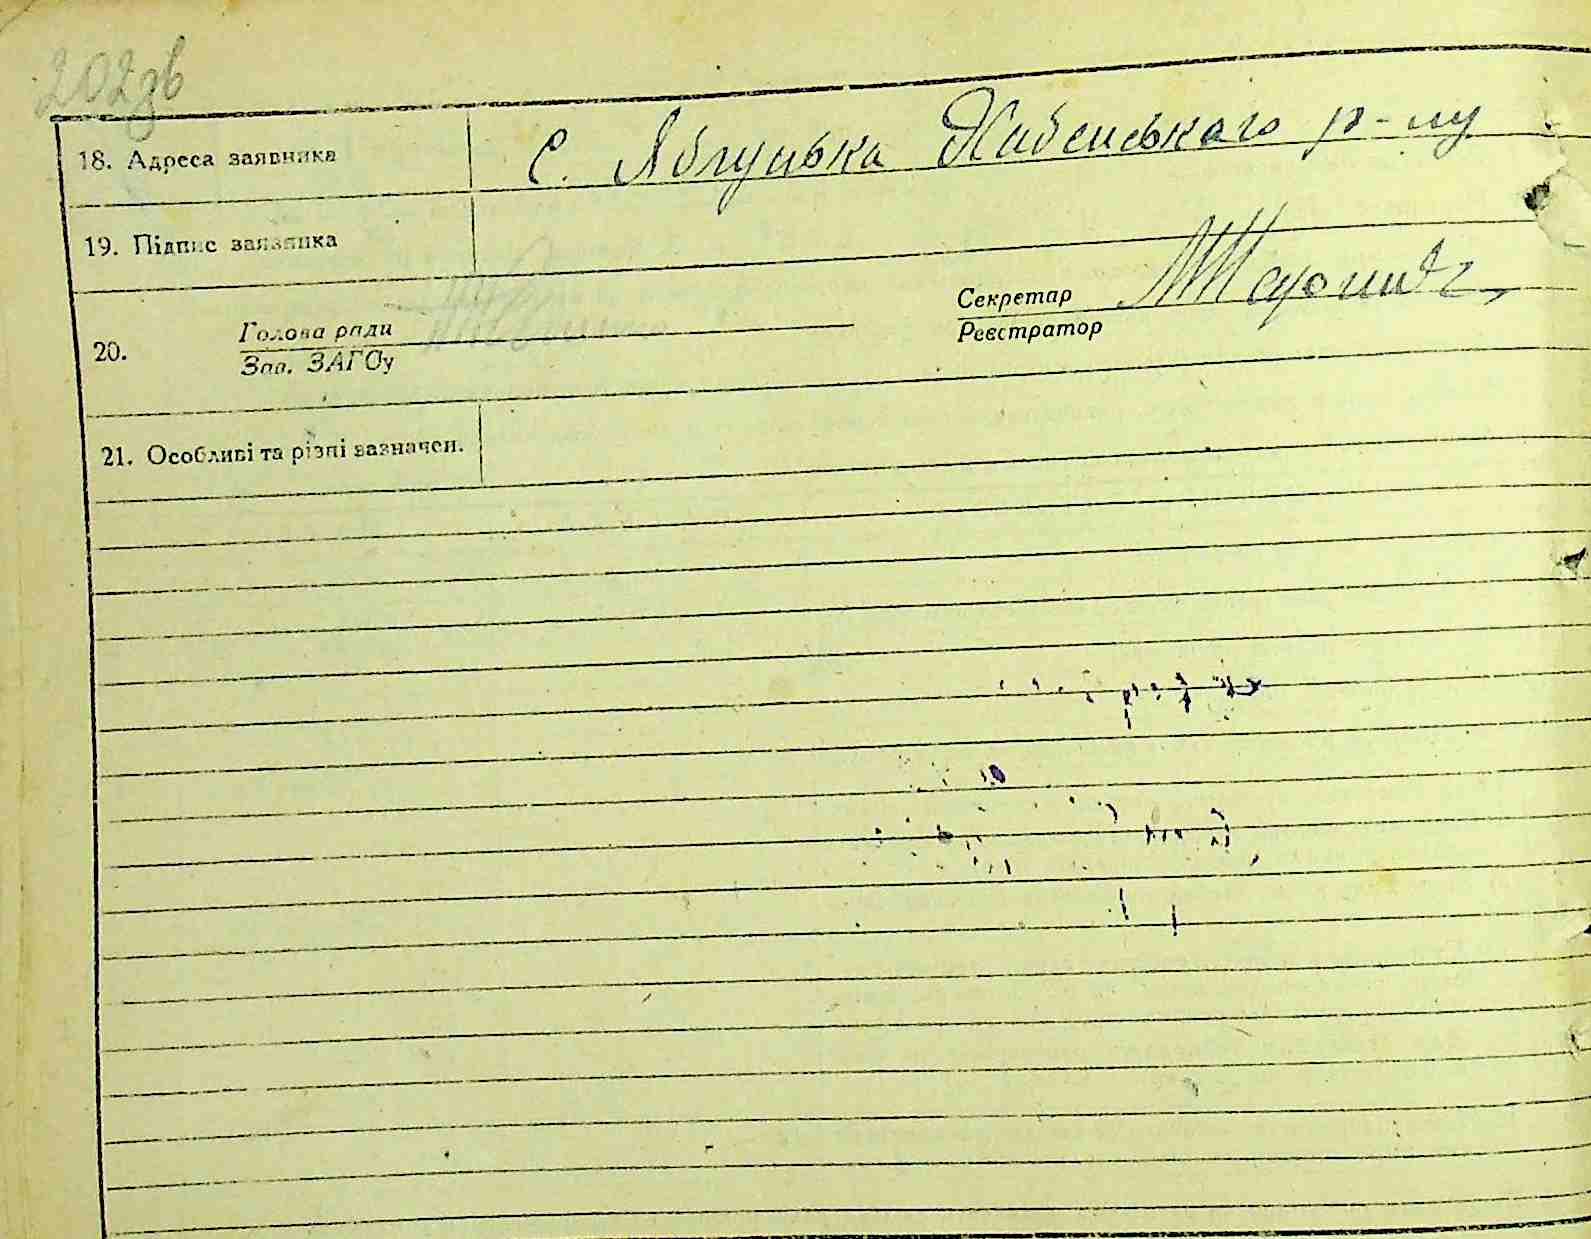 202зв
18. Адреса заявника с. Яблуцька Хабенського р-ну
19. Підпис заявника
20. Голова ради
Зав. ЗАГСу
Секретар
Реєстратор
21. Особливі та різні зазначен.